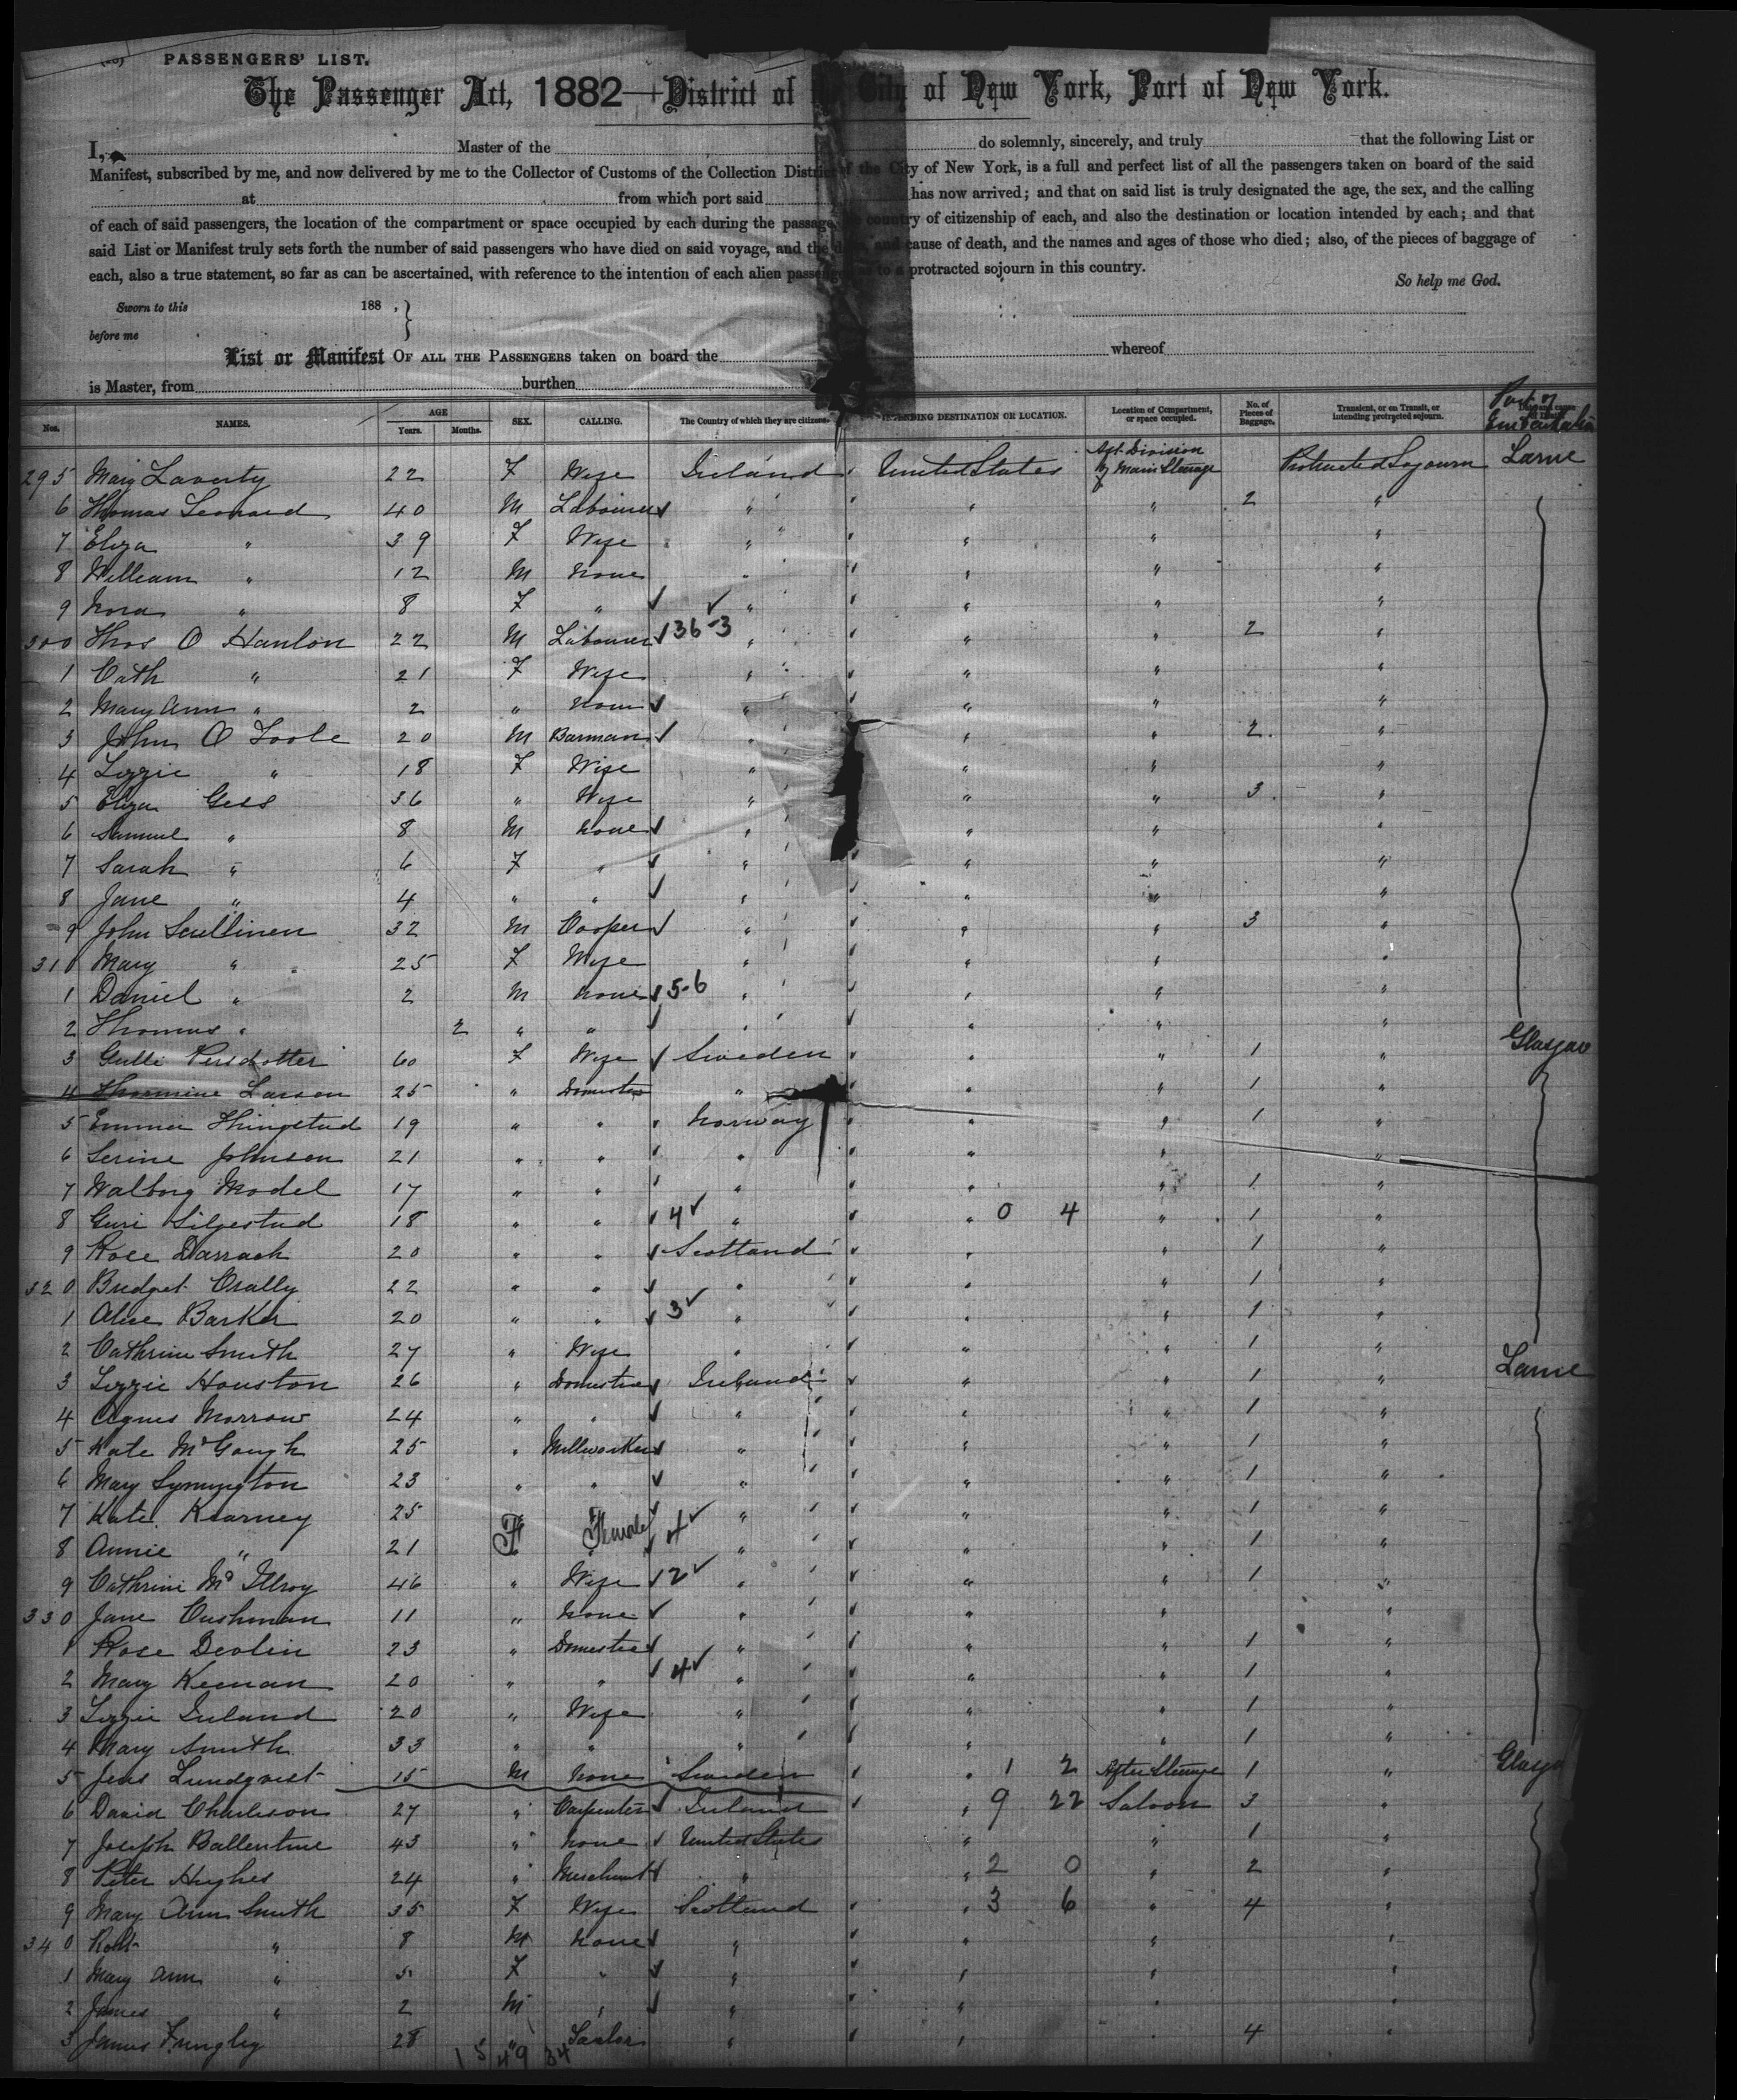 PASSENGERS' LIST.
The Passenger Act, 1882—District of the City of New York, Port of New York.
I, Master of the do solemnly, sincerely, and truly that the following List or
Manifest, subscribed by me, and now delivered by me to the Collector of Customs of the Collection District of the City of New York, is a full and perfect list of all the passengers taken on board of the said
at from which port said has now arrived; and that on said list is truly designated the age, the sex, and the calling
of each of said passengers, the location of the compartment or space occupied by each during the passage, the country of citizenship of each, and also the destination or location intended by each; and that
said List or Manifest truly sets forth the number of said passengers who have died on said voyage, and the date and cause of death, and the names and ages of those who died; also, of the pieces of baggage of
each, also a true statement, so far as can be ascertained, with reference to the intention of each alien passenger as to a protracted sojourn in this country.
So help me God.
Sworn to this 188 , }
before me
List or Manifest OF ALL THE PASSENGERS taken on board the whereof
is Master, from burthen
Nos. NAMES. AGE Years. Months. SEX. CALLING. The Country of which they are citizens. INTENDING DESTINATION OR LOCATION. Location of Compartment, or space occupied. No. of Pieces of Baggage. Transient, or on Transit, or intending protracted sojourn. Port of Embarkation
295 Mary Laverty 22 F Wife Ireland United States Aft Division of Main Steerage Protracted Sojourn Larne
6 Thomas Leonard 40 M Labourer " " " 2 "
7 Eliza " 39 F Wife " " " "
8 William " 12 M None " " " "
9 Nora " 8 F " " " " "
300 Thos O Hanlon 22 M Labourer 36-3 " " " 2 "
1 Cath " 21 F Wife " " " "
2 Mary Ann " 2 " None " " " "
3 John O Toole 20 M Barman " " " 2 "
4 Lizzie " 18 F Wife " " " "
5 Eliza 36 " Wife " " " 3 "
6 Samuel " 8 M None " " " "
7 Sarah " 6 F " " " " "
8 Jane " 4 " " " " " "
9 John Scullinen 32 M Cooper " " " 3 "
310 Mary " 25 F Wife " " " "
1 Daniel " 2 M None 5-6 " " " "
2 Thomas " 2 " " " " " "
3 Gulli Persdotter 60 F Wife Sweden " " 1 " Glasgow
4 Larson 25 " Domestic " " " 1 "
5 Emma Thingstad 19 " " Norway " " 1 "
6 Serine Johnson 21 " " " " " "
7 Walborg Model 17 " " " " " 1 "
8 Guri 18 " " 4 " " 0 4 " 1 "
9 Rose Darrach 20 " " Scotland " " 1 "
320 Bridget Crally 22 " " " " " 1 "
1 Alice Barker 20 " " 3 " " " 1 "
2 Cathrine Smith 27 " Wife " " " 1 "
3 Lizzie Houston 26 " Domestic Ireland " " 1 " Larne
4 Agnes Morrow 24 " " " " " 1 "
5 Kate McGough 25 " Millworker " " " 1 "
6 Mary Symington 23 " " " " " 1 "
7 Kate Kearney 25 F Female " " " 1 "
8 Annie " 21 " " 4 " " " 1 "
9 Cathrine McIlroy 46 " Wife 2 " " " 1 "
330 Jane Cushman 11 " None " " " "
1 Rose Devlin 23 " Domestic " " " 1 "
2 Mary Keenan 20 " " 4 " " " 1 "
3 Lizzie Ireland 20 " Wife " " " 1 "
4 Mary Smith 33 " " " " " 1 "
5 Jens Lundqvist 15 M None Sweden " 1 2 After Steerage 1 " Glasgo
6 David Charleson 27 " Carpenter Ireland " 9 22 Saloon 3 "
7 Joseph Ballentine 43 " None United States " " 1 "
8 Peter Hughes 24 " Merchant " " 2 0 " 2 "
9 Mary Ann Smith 35 F Wife Scotland " 3 6 " 4 "
340 Robt " 8 M None " " " "
1 Mary Ann " 5 F " " " " "
2 James " 2 M " " " " "
3 James 28 " Sailor " " " 4 "
15 49 34